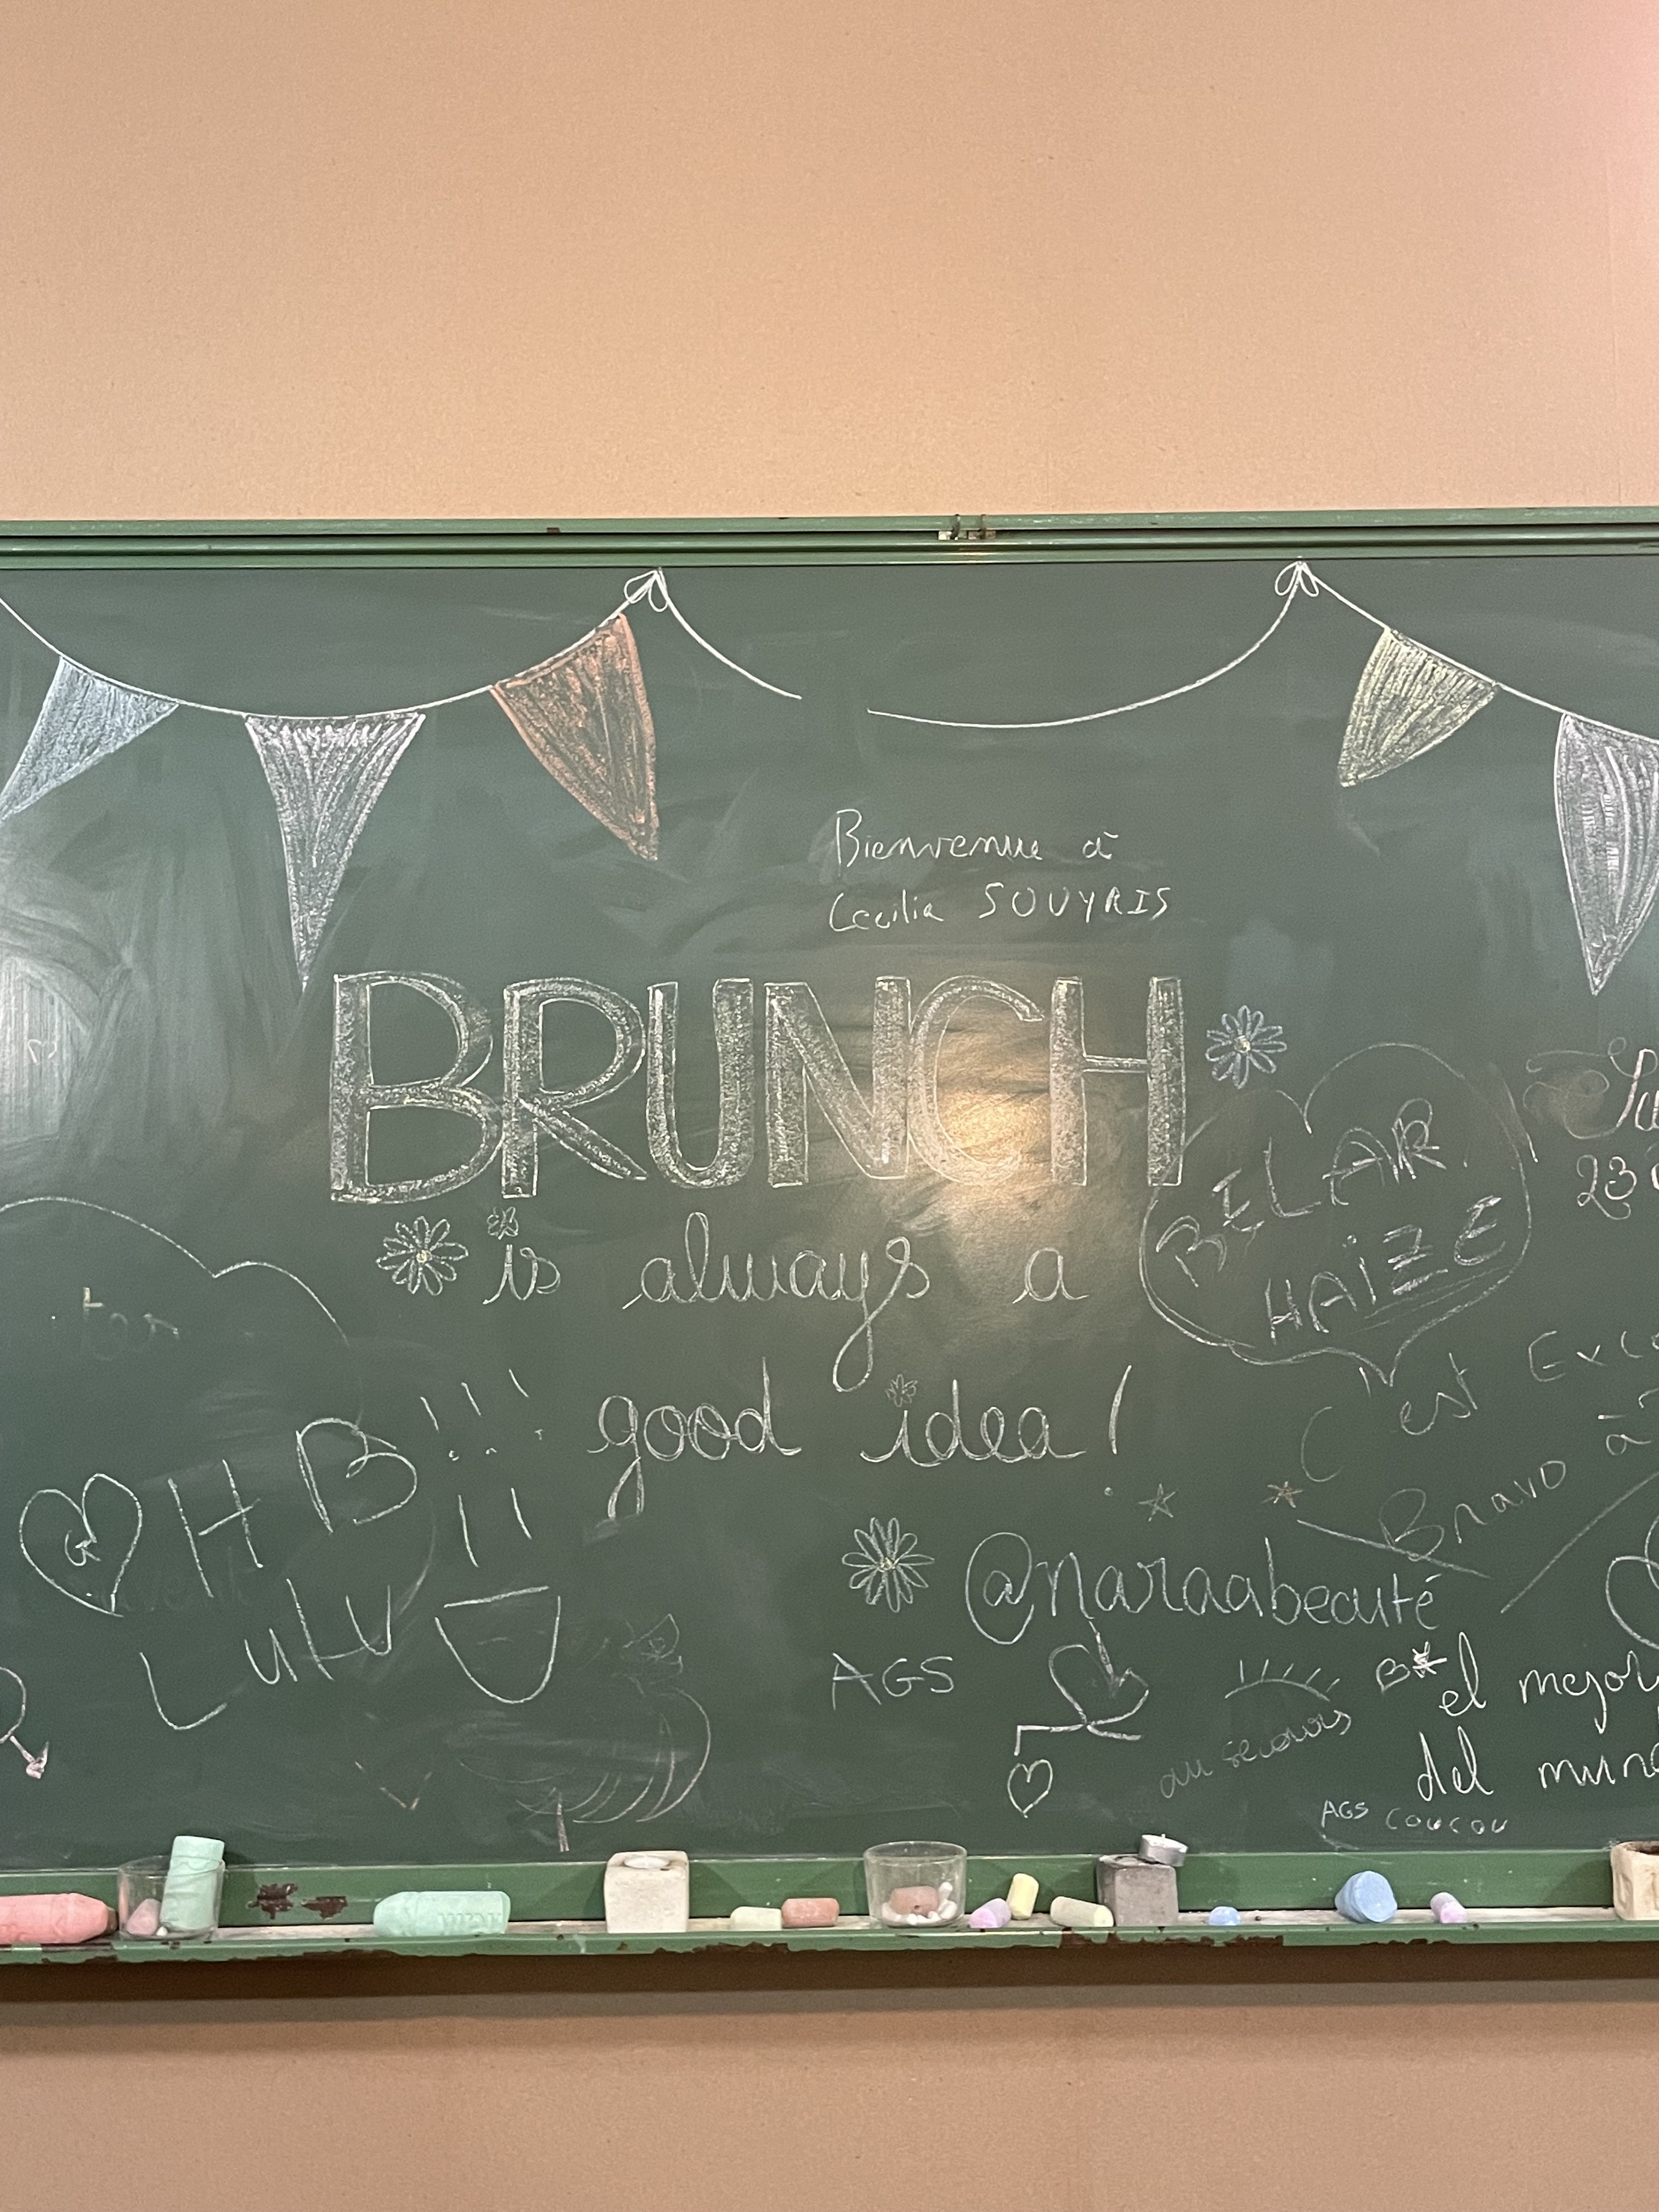 Bienvenue à
Cecilia SOUYRIS
BRUNCH
is always a
good idea !
BILAR
HAIZE
23
C'est
à
Bravo
G HB!!!
!!
LuLu
@naraabeauté
AGS
au secours
el mejor
del
AGS coucou